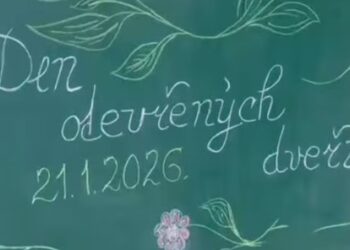 Den
otevřených
dveří
21.1.2026.